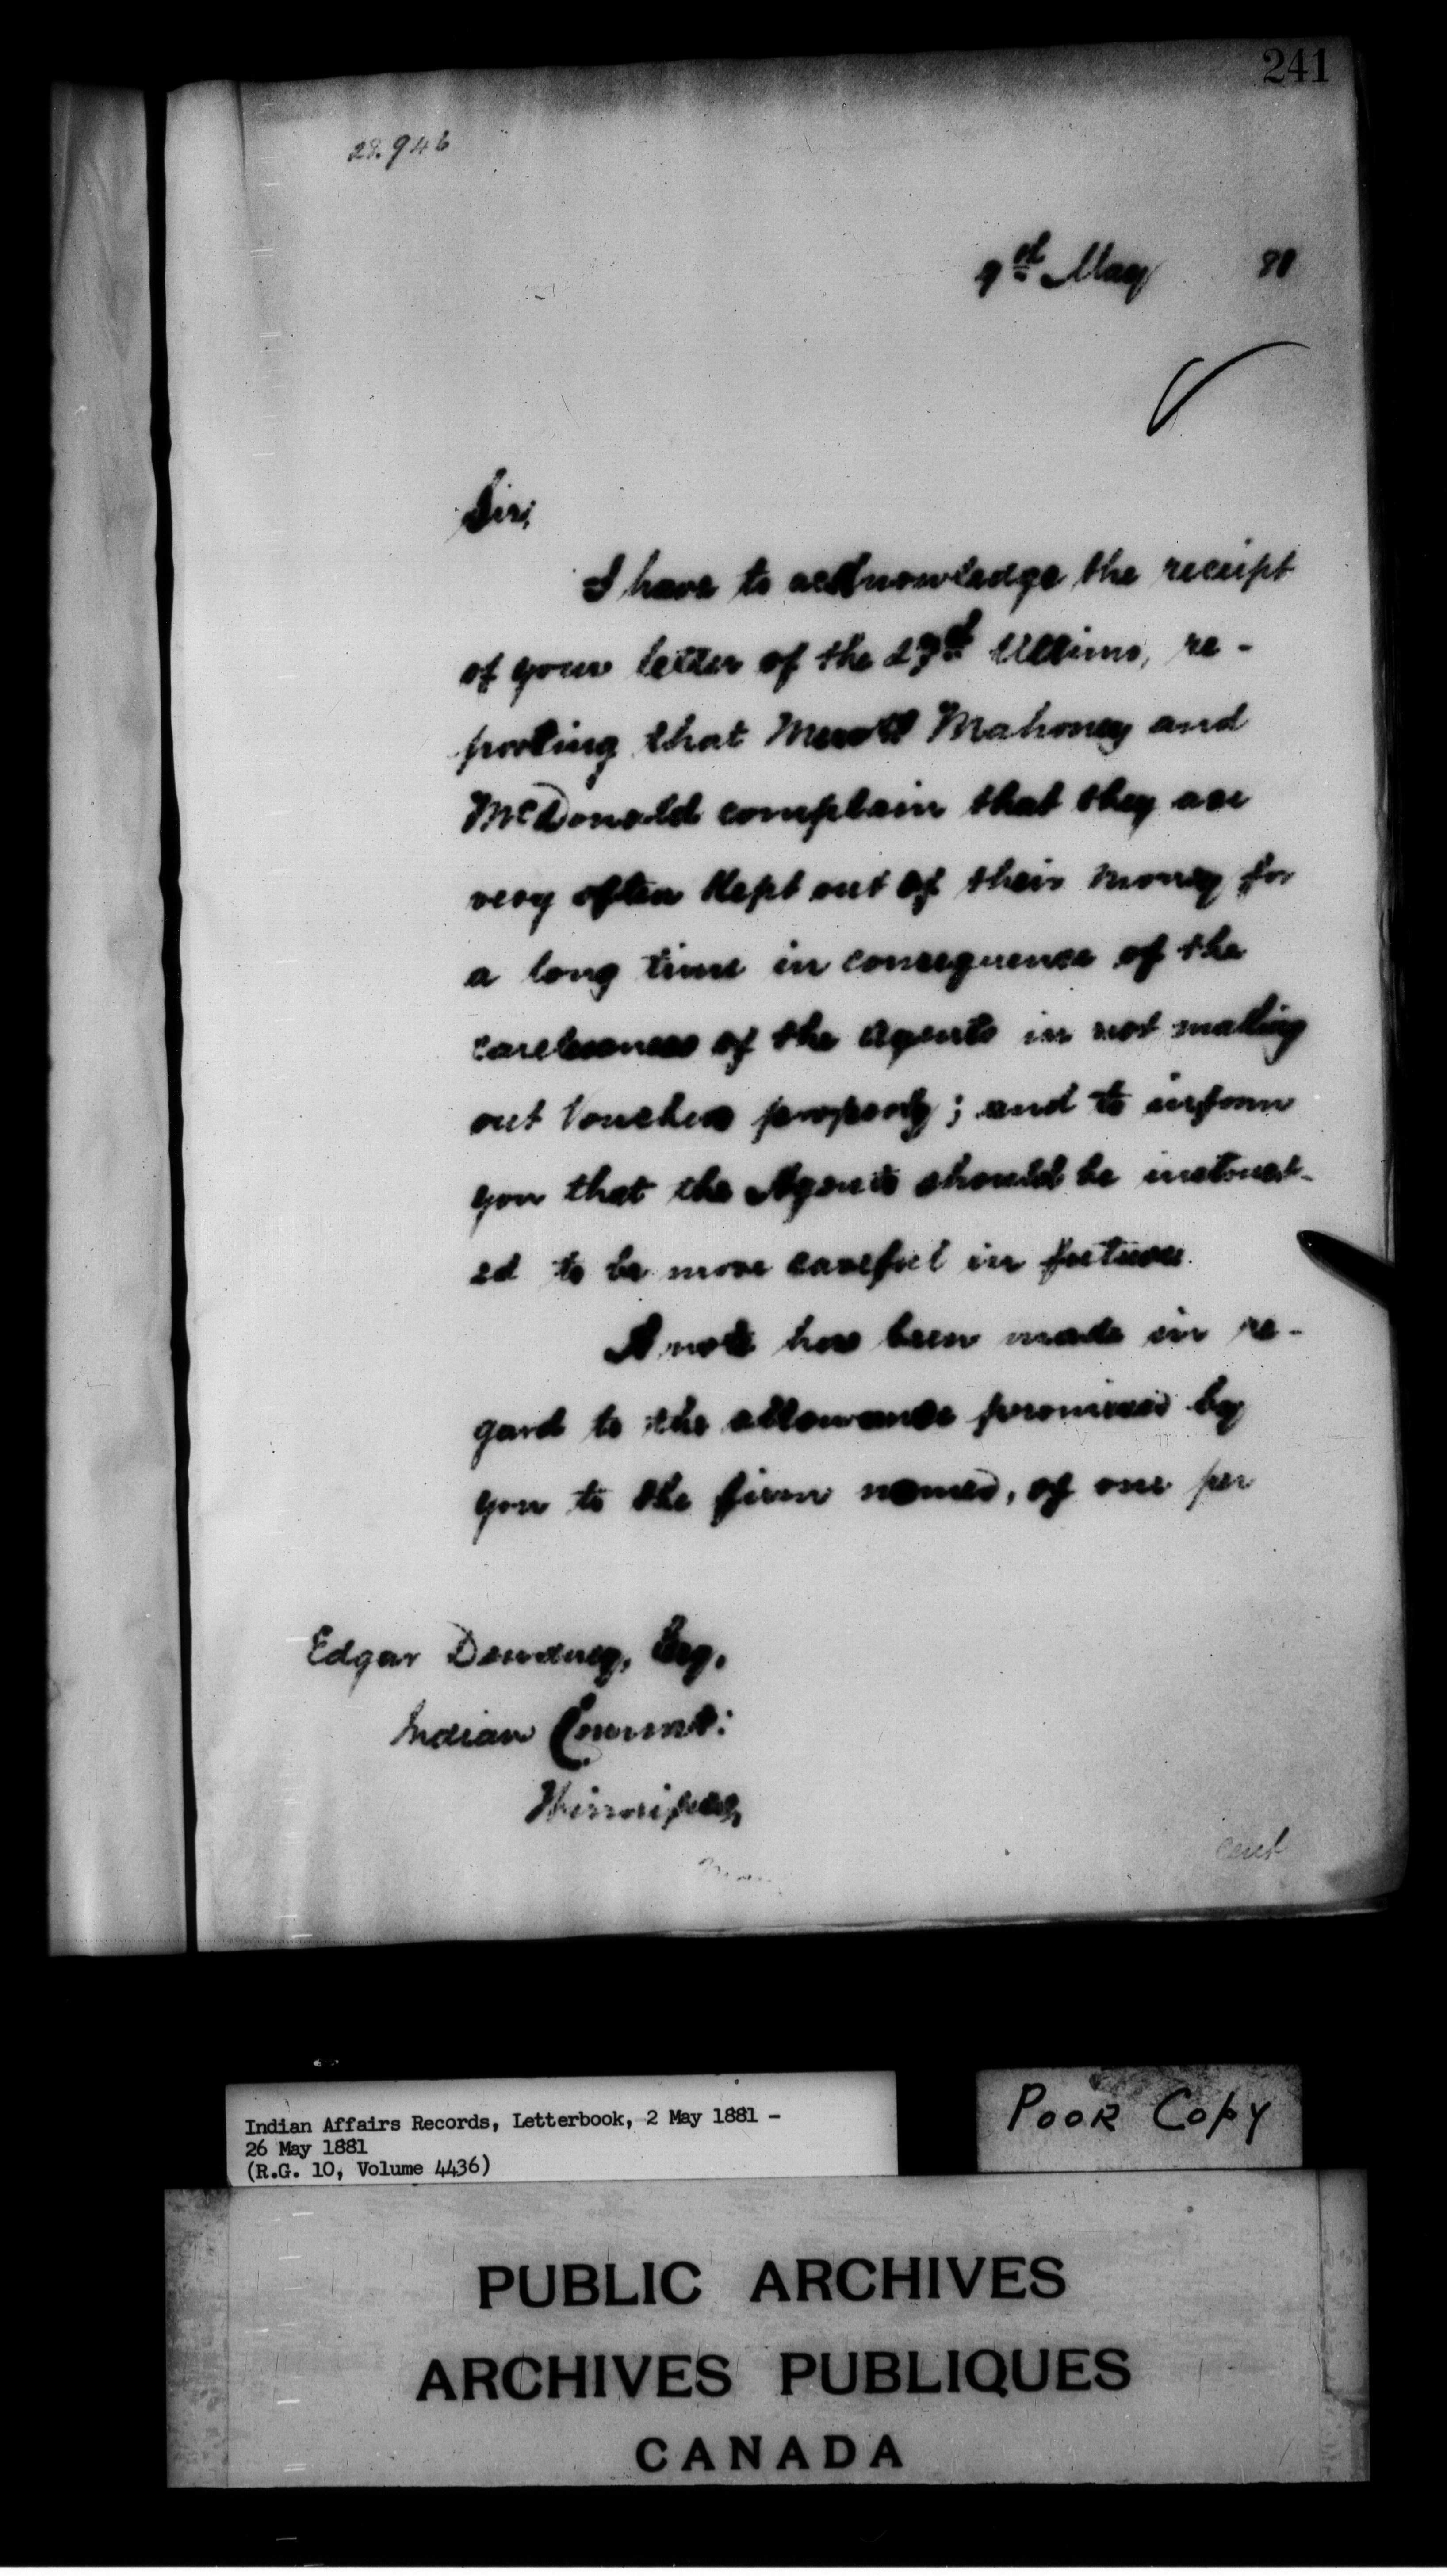 241
28.946
9th May 81
Sir,
I have to acknowledge the receipt
of your letter of the 27th Ultimo, re-
porting that Messrs Mahoney and
McDonald complain that they are
very often kept out of their money for
a long time in consequence of the
carelessness of the Agents in not making
out Vouchers properly; and to inform
you that the Agents should be instruct-
ed to be more careful in future.
A note has been made in re-
gard to the allowance promised by
you to the firm named, of one per
Edgar Dewdney, Esq.
Indian Commr:
Winnipeg,
cent
Indian Affairs Records, Letterbook, 2 May 1881 -
26 May 1881
(R.G. 10, Volume 4436)
POOR COPY
PUBLIC ARCHIVES
ARCHIVES PUBLIQUES
CANADA